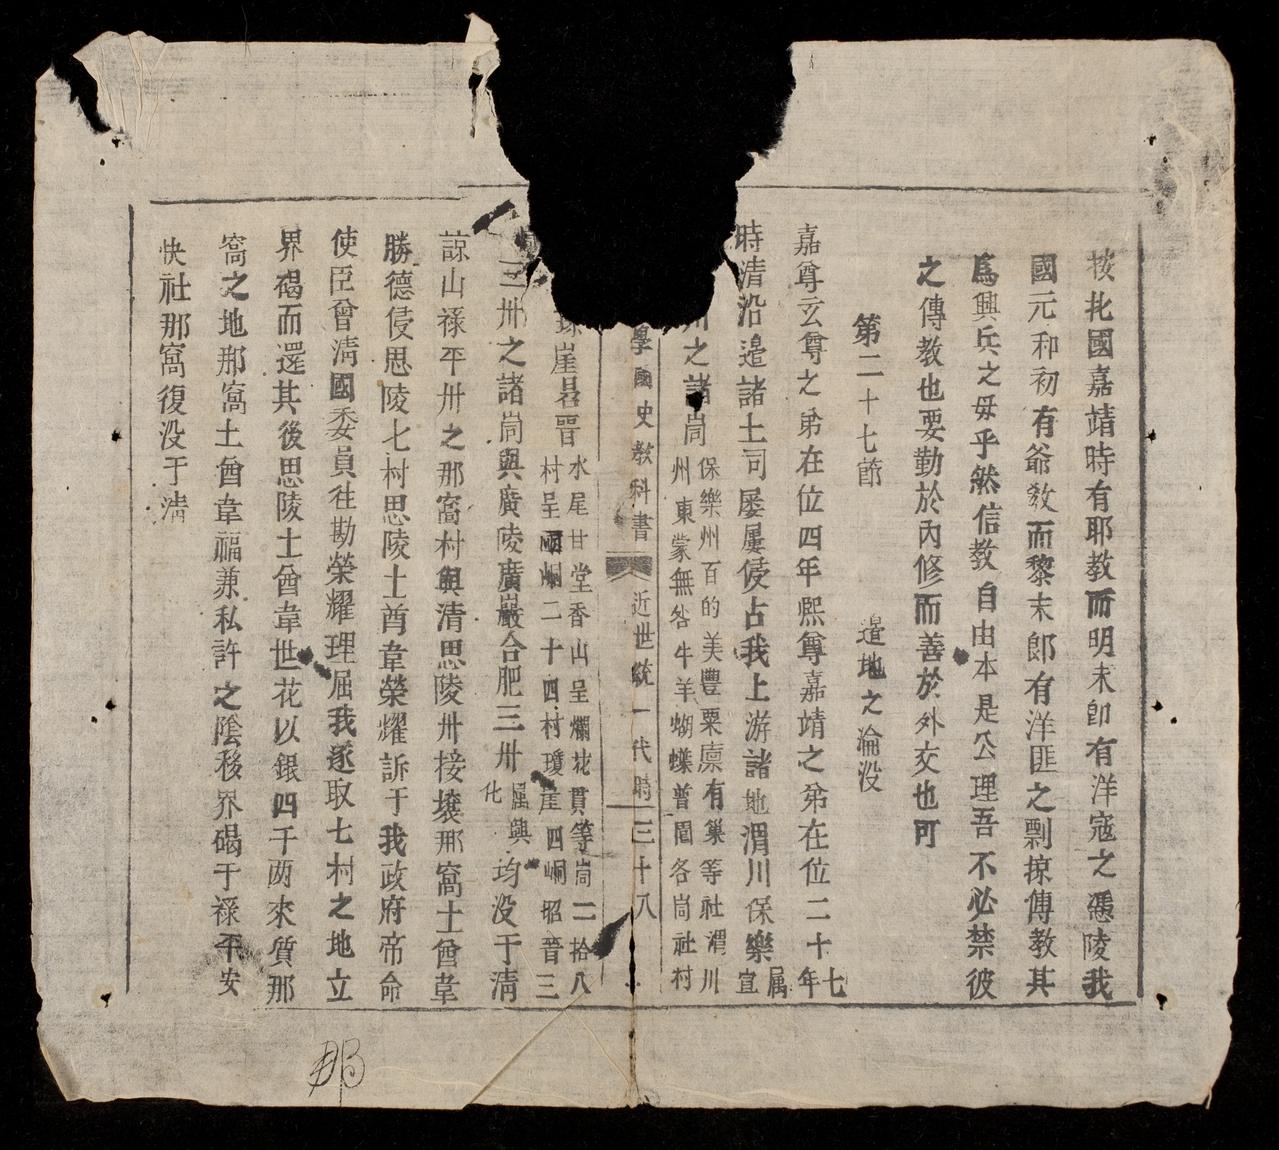 按北國嘉靖時有耶教而明末卽有洋寇之憑陵我
國元和初有爺敎而黎末郎有洋匪之剽掠傳教其
爲興兵之毋乎然信教自由本是公理吾不必禁彼
之傳教也要勤於內修而善於外交也可
第二十七節 邉地之淪没
嘉尊玄尊之弟在位四年熙尊嘉靖之弟在位二十七年
時清沿邉諸土司屡屢侵占我上游諸地渭川保樂属宣
川之諸峝保樂州百的美豐粟廪有巢等社渭川州東蒙無咎牛羊蝴蝶普園各峝社村
學國史教科書 近世統一代時 三十八
崖昙晉水尾甘堂香山呈爛花貫等峝二拾八村呈峒二十四村瓊崖四峒昭晉三
三卅之諸峝與廣陵廣巖合肥三卅属興化均没于清
諒山禄平卅之那窩村與清思陵卅接壤那窩土酋韋
勝德侵思陵七村思陵土酋韋榮耀訴于我政府帝命
使臣曾淸國委員往勘榮耀理屈我遂取七村之地立
界碣而還其後思陵土酋韋世花以銀四千两來質那
窩之地那窩土酋韋福兼私許之陰移界碣于禄平安
快社那窩復没于淸
那